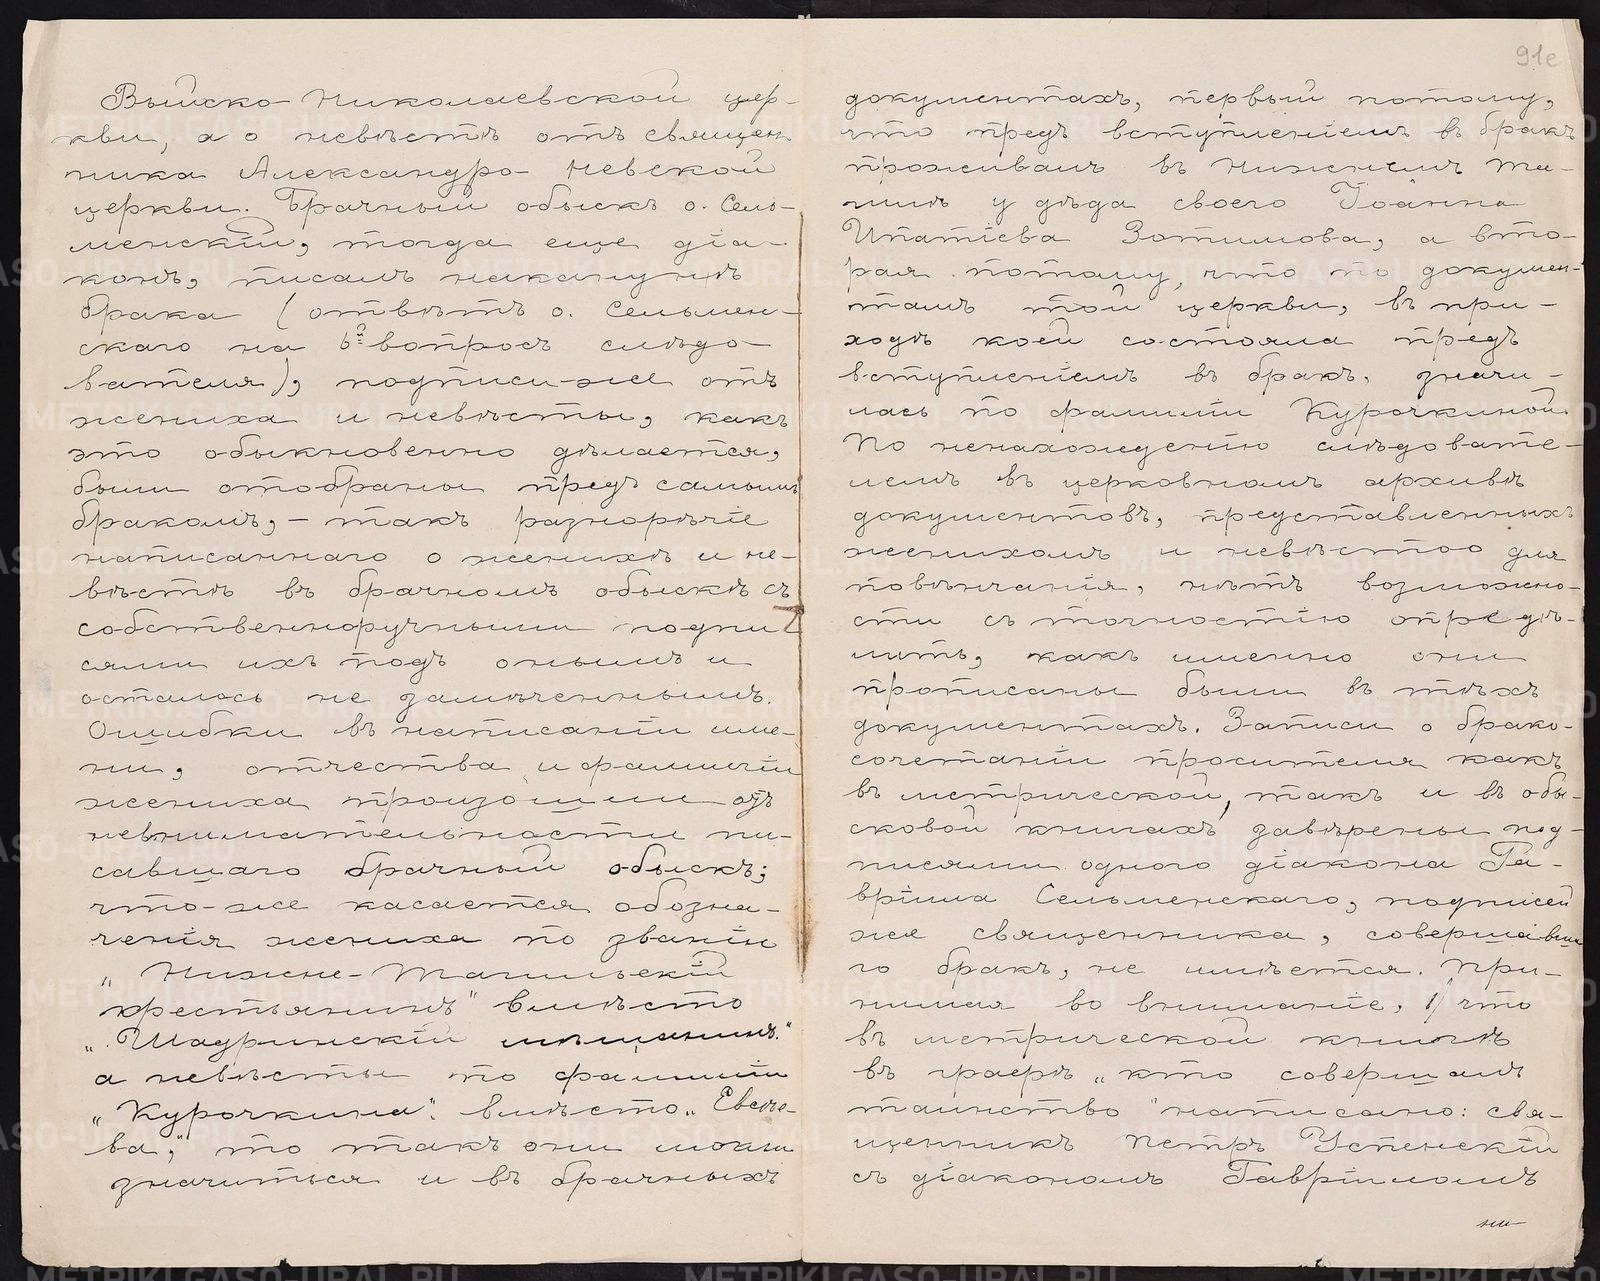 Выйско-Николаевской цер-
кви, а о невѣстѣ отъ священ
ника Александро-Невской
церкви. Брачный обыскъ о. Сель-
менскій, тогда еще діа-
конъ, писалъ наканунѣ
брака (отвѣтъ о. Сельмен-
скаго на 6й вопросъ слѣдо-
вателя), подписи-же отъ
жениха и невѣсты, какъ
это обыкновенно дѣлается,
были отобраны предъ самымъ
бракомъ, - такъ разнорѣчіе
написаннаго о женихѣ и не-
вѣстѣ въ брачномъ обыскѣ съ
собственноручными подпи
сями ихъ подъ онымъ и
осталось не замѣченнымъ.
Ошибки въ написаніи име-
ни, отчества и фамиліи
жениха произошли отъ
невнимательности пи-
савшаго брачный обыскъ;
что-же касается обозна-
ченія жениха по званію
„Нижне-Тагильскій
крестьянинъ" вмѣсто
„Шадринскій мѣщанинъ"
а невѣсты по фамиліи
„Курочкина" вмѣсто „Евсѣе-
ва", то такъ они могли
значиться и въ брачныхъ
91е
документахъ, первый потому,
что предъ вступленіемъ въ бракъ
проживалъ въ Нижнемъ Та-
гилѣ у дѣда своего Іоанна
Ипатіева Зотимова, а вто-
рая потому, что по докумен-
тамъ той церкви, въ при-
ходѣ коей состояла предъ
вступленіемъ въ бракъ, значи-
лась по фамиліи Курочкиной.
По ненахожденію слѣдовате-
лемъ въ церковномъ архивѣ
документовъ, представленныхъ
женихомъ и невѣстою для
повѣнчанія, нѣтъ возможно-
сти съ точностію опредѣ-
лить, какъ именно они
прописаны были въ тѣхъ
документахъ. Записи о брако-
сочетаніи просителя какъ
въ метрической, такъ и въ обы-
сковой книгахъ завѣрены под-
писями одного діакона Га-
вріила Сельменскаго, подписей
же священника, совершавша
го бракъ, не имѣется. При-
нимая во вниманіе, 1) что
въ метрической книгѣ
въ графѣ „кто совершалъ
таинство" написано: свя-
щенникъ Петръ Успенскій
съ діакономъ Гавріиломъ